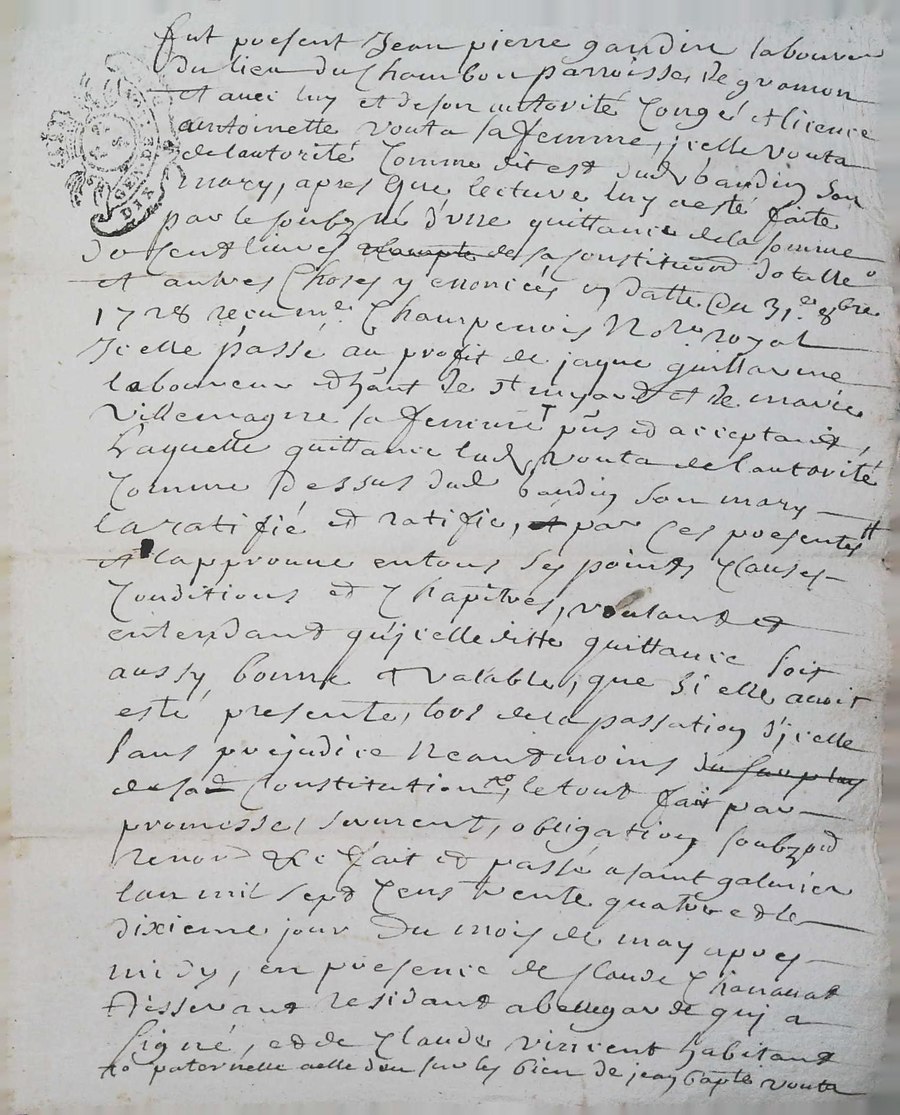 fut present Jean pierre gaudin laboureur
du lieu du Chambon parroisse de gramon
et avec luy et de son autorité Congé et licence
antoinette vouta sa femme, jcelle vouta
de l'autorité Comme dit est dud baudin son
mary, apres que lecture luy a esté faite
par le soubz né d'une quittance de la somme
de Cent livres de sa Constitution dotalle
et autres Choses y enoncées en datte du 31.e 8bre
1728 receu me Champenois Nore royal
Jcelle passé au profit de jaque guillaume
laboureur de st et de marie
Villemagne sa femme pns et acceptant,
Laquelle quittance lad vouta de l'autorité
Comme Dessus dud baudin son mary
la ratifié et ratifie, par Ces presentes
et l'approuve en tous ses points Clauses
Conditions et Chapitres, voulant et
entendant qu'jcelle ditte quittance soit
aussy bonne et valable, que si elle avoit
esté presente, lors de la passation d'jcelle
sans prejudice Neantmoins du surplus
de sad Constitution, le tout fait par
promesses serment, obligation soubz
renon &c fait et passé a saint galmier
l'an mil sept Cens trente quatre et le
dixieme jour Du mois de may apres
midy, en presence de Claude
Tisserant residant a bellegarde qui a
signé, et de Claude vincent habitant
paternelle a elle deu sur les bien de jean bapte vouta
GENE
DIX